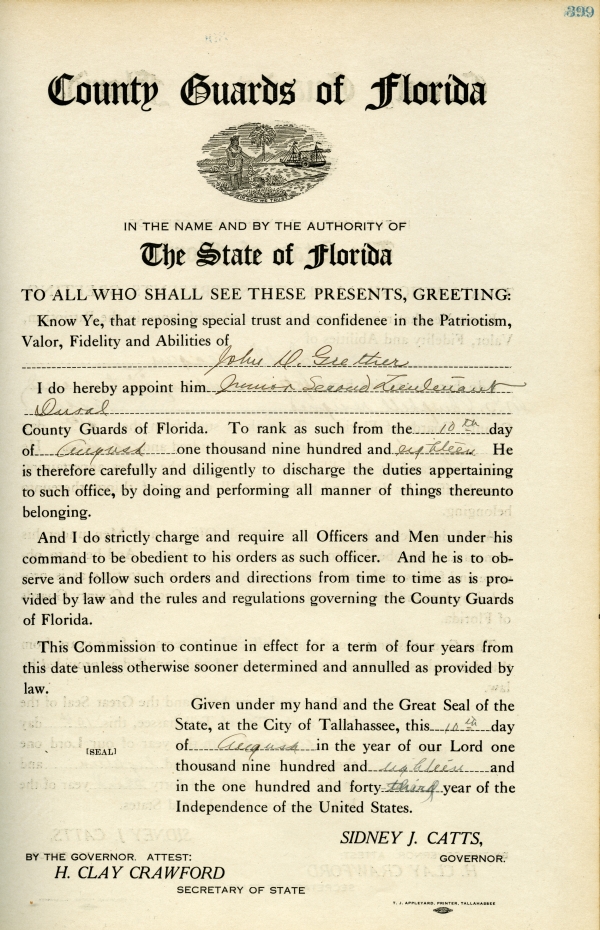 399
County Guards of Florida
IN GOD WE TRUST
IN THE NAME AND BY THE AUTHORITY OF
The State of Florida
TO ALL WHO SHALL SEE THESE PRESENTS, GREETING:
Know Ye, that reposing special trust and confidenee in the Patriotism,
Valor, Fidelity and Abilities of
John D. Grether
I do hereby appoint him Junior Second Lieutenant
Duval
County Guards of Florida. To rank as such from the 10th day
of August one thousand nine hundred and eighteen He
is therefore carefully and diligently to discharge the duties appertaining
to such office, by doing and performing all manner of things thereunto
belonging.
And I do strictly charge and require all Officers and Men under his
command to be obedient to his orders as such officer. And he is to ob-
serve and follow such orders and directions from time to time as is pro-
vided by law and the rules and regulations governing the County Guards
of Florida.
This Commission to continue in effect for a term of four years from
this date unless otherwise sooner determined and annulled as provided by
law.
Given under my hand and the Great Seal of the
State, at the City of Tallahassee, this 10th day
[SEAL] of August in the year of our Lord one
thousand nine hundred and eighteen and
in the one hundred and forty third year of the
Independence of the United States.
SIDNEY J. CATTS,
BY THE GOVERNOR. ATTEST: GOVERNOR.
H. CLAY CRAWFORD
SECRETARY OF STATE
T. J. APPLEYARD, PRINTER, TALLAHASSEE